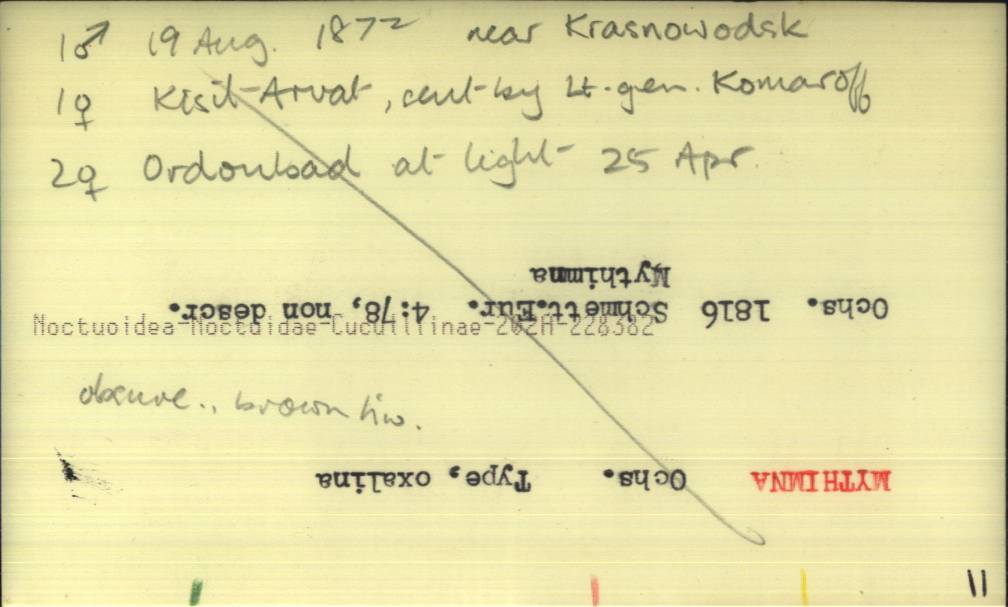 1♂ 19 Aug. 1872 near Krasnowodsk
1♀ Kisil-Arvat, sent by Lt. gen. Komaroff
2♀ Ordoubad at light 25 Apr.
Mythimna
Ochs. 1816 Schmett.Eur. 4:78, non descr.
Noctuoidea-Noctuidae-Cucullinae-202A-228382
obscure., brown
MYTHIMNA Ochs. Type, oxalina
11